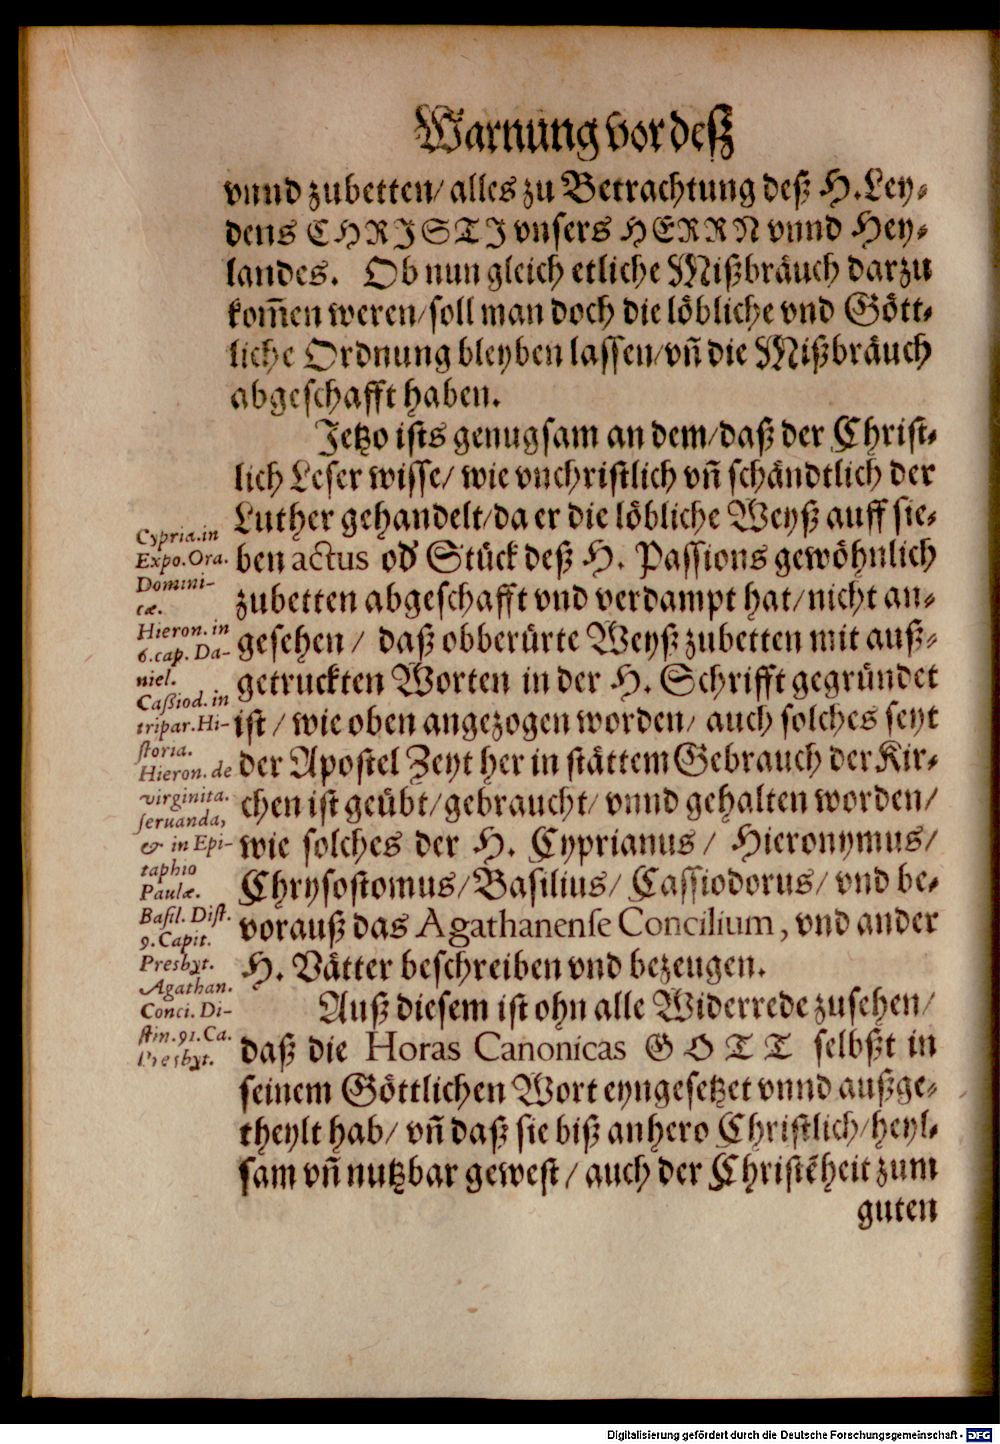 Warnung vor deß
vnnd zubetten/ alles zu Betrachtung deß H. Ley⸗
dens CHRISTI vnsers HERRN vnnd Hey⸗
landes. Ob nun gleich etliche Mißbräuch darzu
kom̄en weren/ soll man doch die löbliche vnd Gött⸗
liche Ordnung bleyben lassen/ vn̄ die Mißbräuch
abgeschafft haben.
Jetzo ists genugsam an dem/ daß der Christ⸗
lich Leser wisse/ wie vnchristlich vn̄ schändtlich der
Luther gehandelt/ da er die löbliche Weyß auff sie⸗
ben actus od' Stück deß H. Passions gewöhnlich
zubetten abgeschafft vnd verdampt hat/ nicht an⸗
gesehen/ daß obberürte Weyß zubetten mit auß⸗
getruckten Worten in der H. Schrifft gegründet
ist/ wie oben angezogen worden/ auch solches seyt
der Apostel Zeyt her in stättem Gebrauch der Kir⸗
chen ist geübt/ gebraucht/ vnnd gehalten worden/
wie solches der H. Cyprianus/ Hieronymus/
Chrysostomus/ Basilius/ Cassiodorus/ vnd be⸗
vorauß das Agathanense Concilium, vnd ander
H. Vätter beschreiben vnd bezeugen.
Auß diesem ist ohn alle Widerrede zusehen/
daß die Horas Canonicas GOTT selbßt in
seinem Göttlichen Wort eyngesetzet vnnd außge⸗
theylt hab/ vn̄ daß sie biß anhero Christlich/ heyl⸗
sam vn̄ nutzbar gewest/ auch der Christēheit zum
guten
Cypria. in
Expo. Ora.
Domini-
cæ.
Hieron. in
6. cap. Da-
niel.
Caßiod. in
tripar. Hi-
storia.
Hieron. de
virginita.
seruanda,
& in Epi-
taphio
Paulæ.
Basil. Dist.
9. Capit.
Presbyt.
Agathan.
Conci. Di-
stin. 91. Ca.
Presbyt.
Digitalisierung gefördert durch die Deutsche Forschungsgemeinschaft - DFG